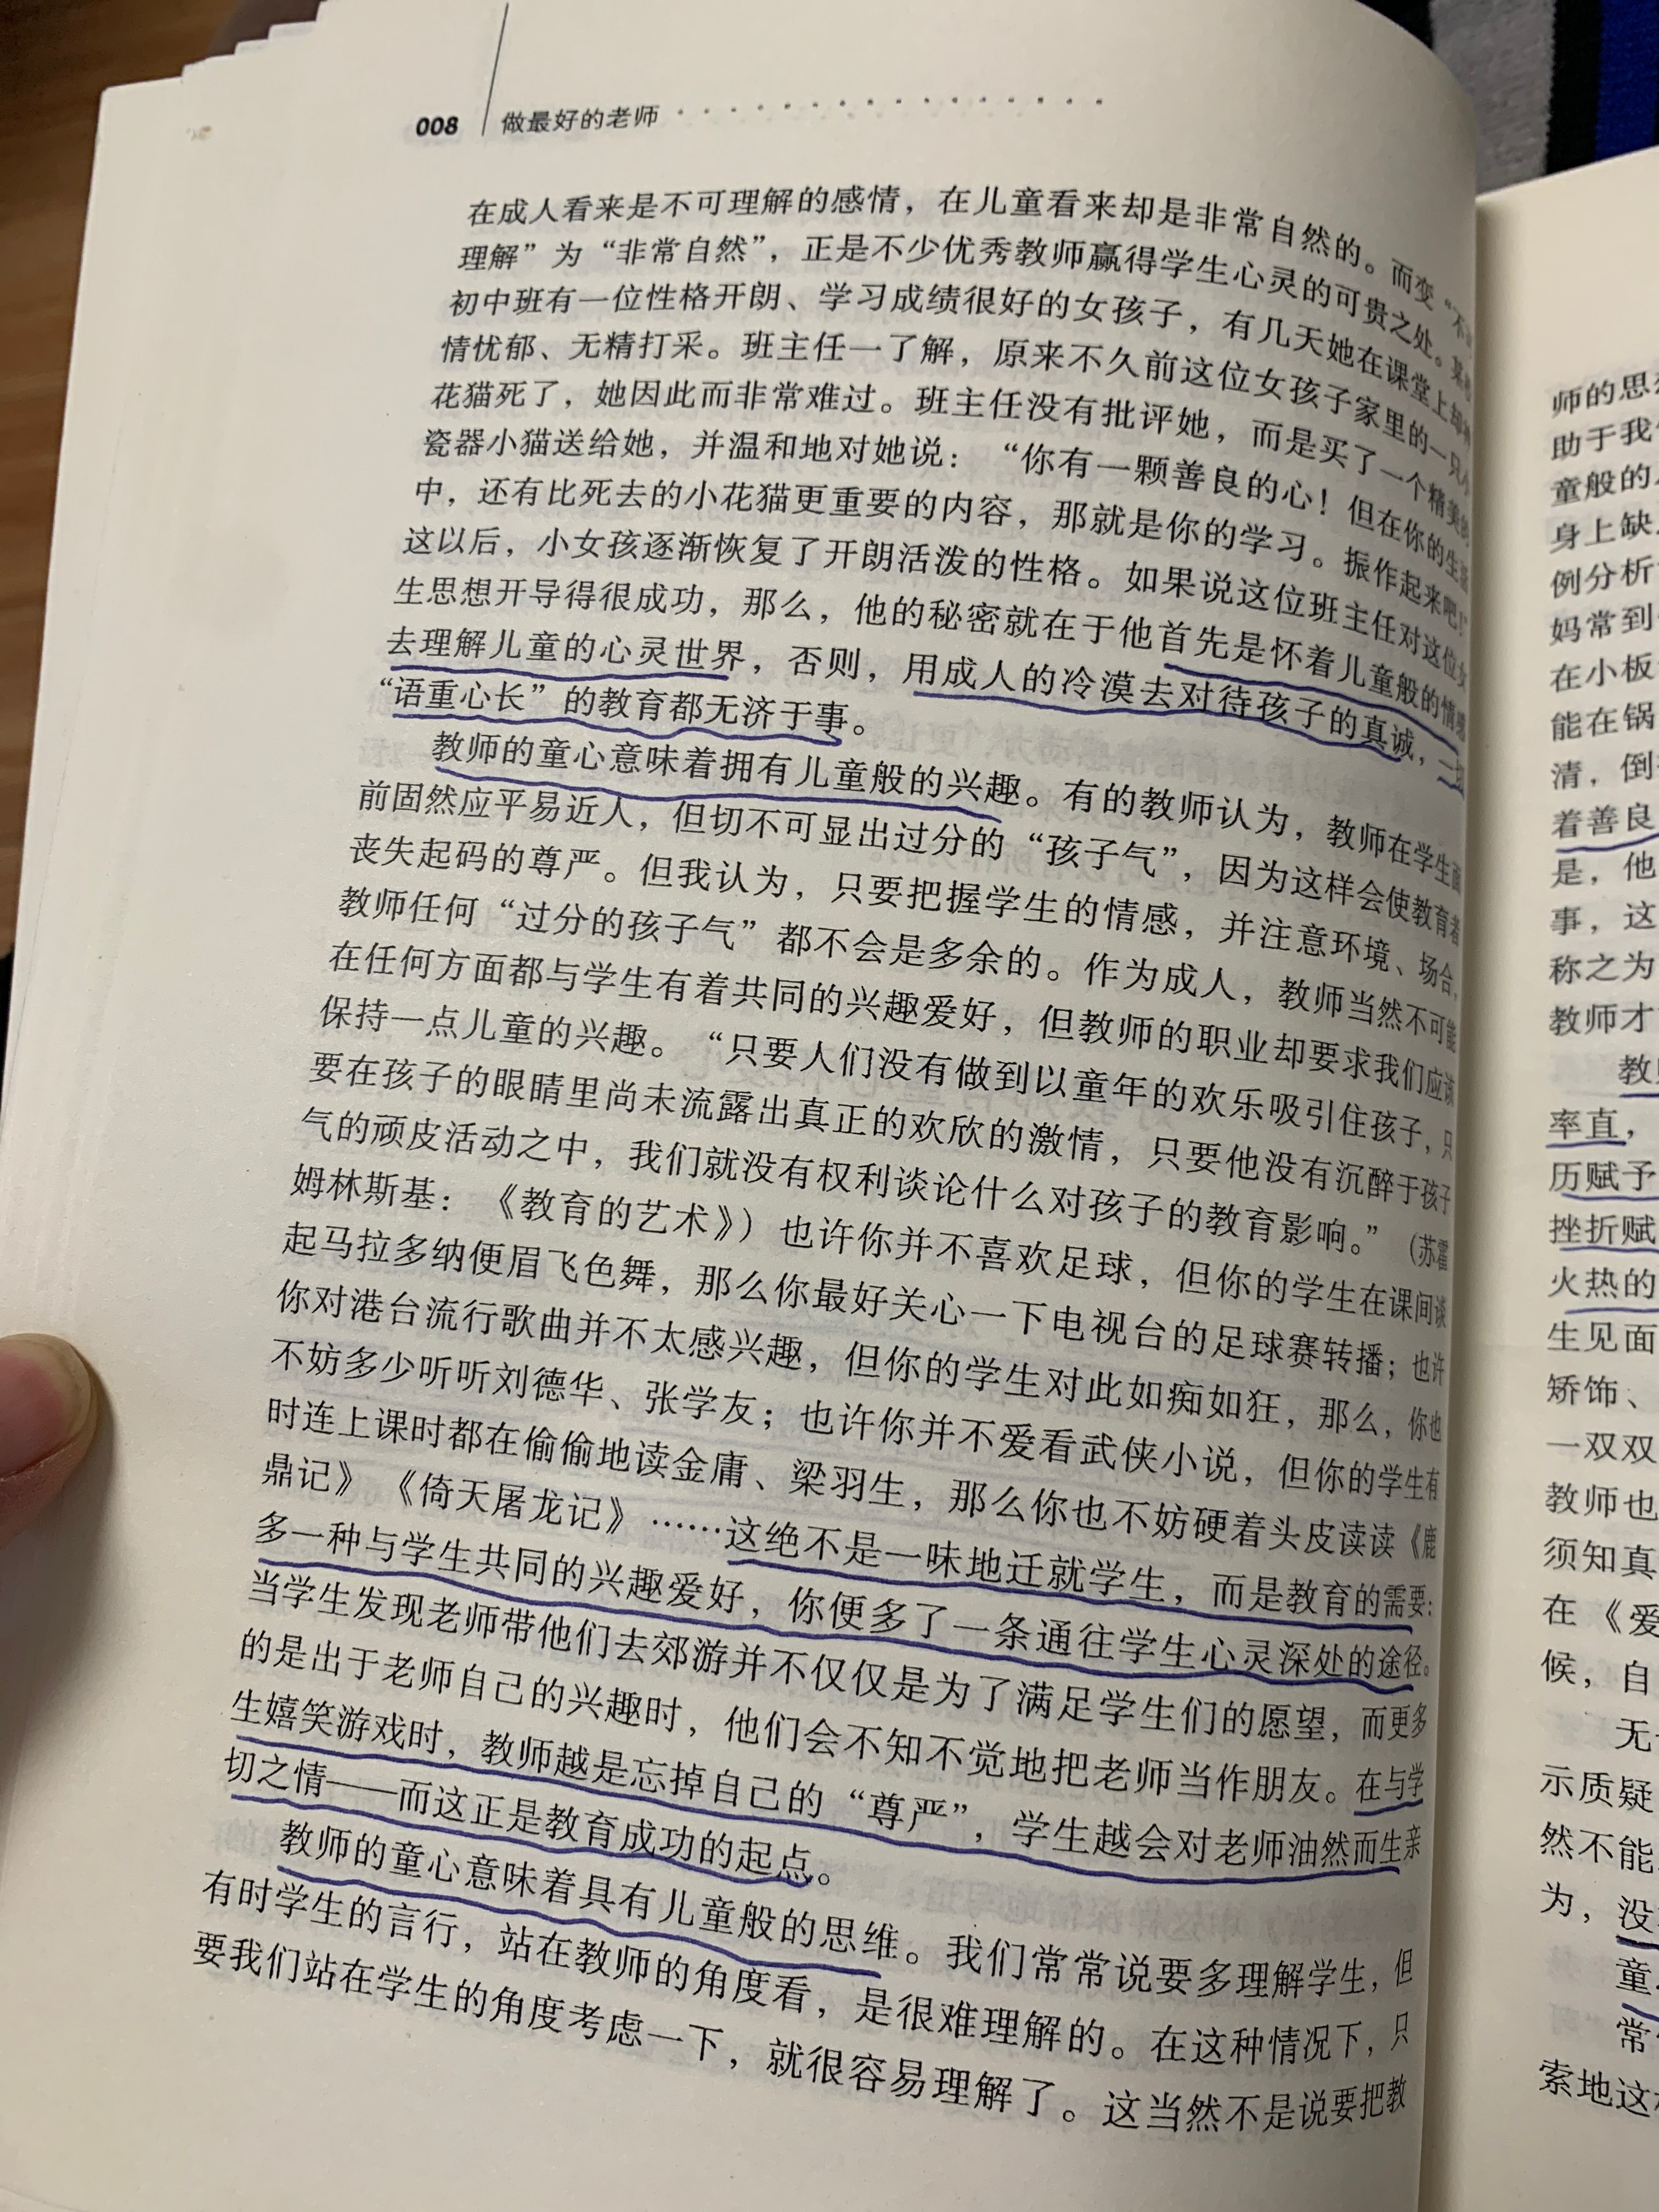 008 做最好的老师
在成人看来是不可理解的感情，在儿童看来却是非常自然的。而变“不
理解”为“非常自然”，正是不少优秀教师赢得学生心灵的可贵之处。某
初中班有一位性格开朗、学习成绩很好的女孩子，有几天她在课堂上却神
情忧郁、无精打采。班主任一了解，原来不久前这位女孩子家里的一只小
花猫死了，她因此而非常难过。班主任没有批评她，而是买了一个精美的
瓷器小猫送给她，并温和地对她说：“你有一颗善良的心！但在你的生活
中，还有比死去的小花猫更重要的内容，那就是你的学习。振作起来吧！”
这以后，小女孩逐渐恢复了开朗活泼的性格。如果说这位班主任对这位女
生思想开导得很成功，那么，他的秘密就在于他首先是怀着儿童般的情感
去理解儿童的心灵世界，否则，用成人的冷漠去对待孩子的真诚，一切
“语重心长”的教育都无济于事。
教师的童心意味着拥有儿童般的兴趣。有的教师认为，教师在学生面
前固然应平易近人，但切不可显出过分的“孩子气”，因为这样会使教育者
丧失起码的尊严。但我认为，只要把握学生的情感，并注意环境、场合，
教师任何“过分的孩子气”都不会是多余的。作为成人，教师当然不可能
在任何方面都与学生有着共同的兴趣爱好，但教师的职业却要求我们应该
保持一点儿童的兴趣。“只要人们没有做到以童年的欢乐吸引住孩子，只
要在孩子的眼睛里尚未流露出真正的欢欣的激情，只要他没有沉醉于孩子
气的顽皮活动之中，我们就没有权利谈论什么对孩子的教育影响。”（苏霍
姆林斯基：《教育的艺术》）也许你并不喜欢足球，但你的学生在课间谈
起马拉多纳便眉飞色舞，那么你最好关心一下电视台的足球赛转播；也许
你对港台流行歌曲并不太感兴趣，但你的学生对此如痴如狂，那么，你也
不妨多少听听刘德华、张学友；也许你并不爱看武侠小说，但你的学生有
时连上课时都在偷偷地读金庸、梁羽生，那么你也不妨硬着头皮读读《鹿
鼎记》《倚天屠龙记》……这绝不是一味地迁就学生，而是教育的需要：
多一种与学生共同的兴趣爱好，你便多了一条通往学生心灵深处的途径。
当学生发现老师带他们去郊游并不仅仅是为了满足学生们的愿望，而更多
的是出于老师自己的兴趣时，他们会不知不觉地把老师当作朋友。在与学
生嬉笑游戏时，教师越是忘掉自己的“尊严”，学生越会对老师油然而生亲
切之情——而这正是教育成功的起点。
教师的童心意味着具有儿童般的思维。我们常常说要多理解学生，但
有时学生的言行，站在教师的角度看，是很难理解的。在这种情况下，只
要我们站在学生的角度考虑一下，就很容易理解了。这当然不是说要把教
师的思
助于我
童般的
身上缺
例分析
妈常到
在小板
能在锅
清，倒
着善良
是，他
事，这
称之为
教师才
教
率直，
历赋予
挫折赋
火热的
生见面
矫饰、
一双双
教师也
须知真
在《爱
候，自
无
示质疑
然不能
为，没
童
常
索地这